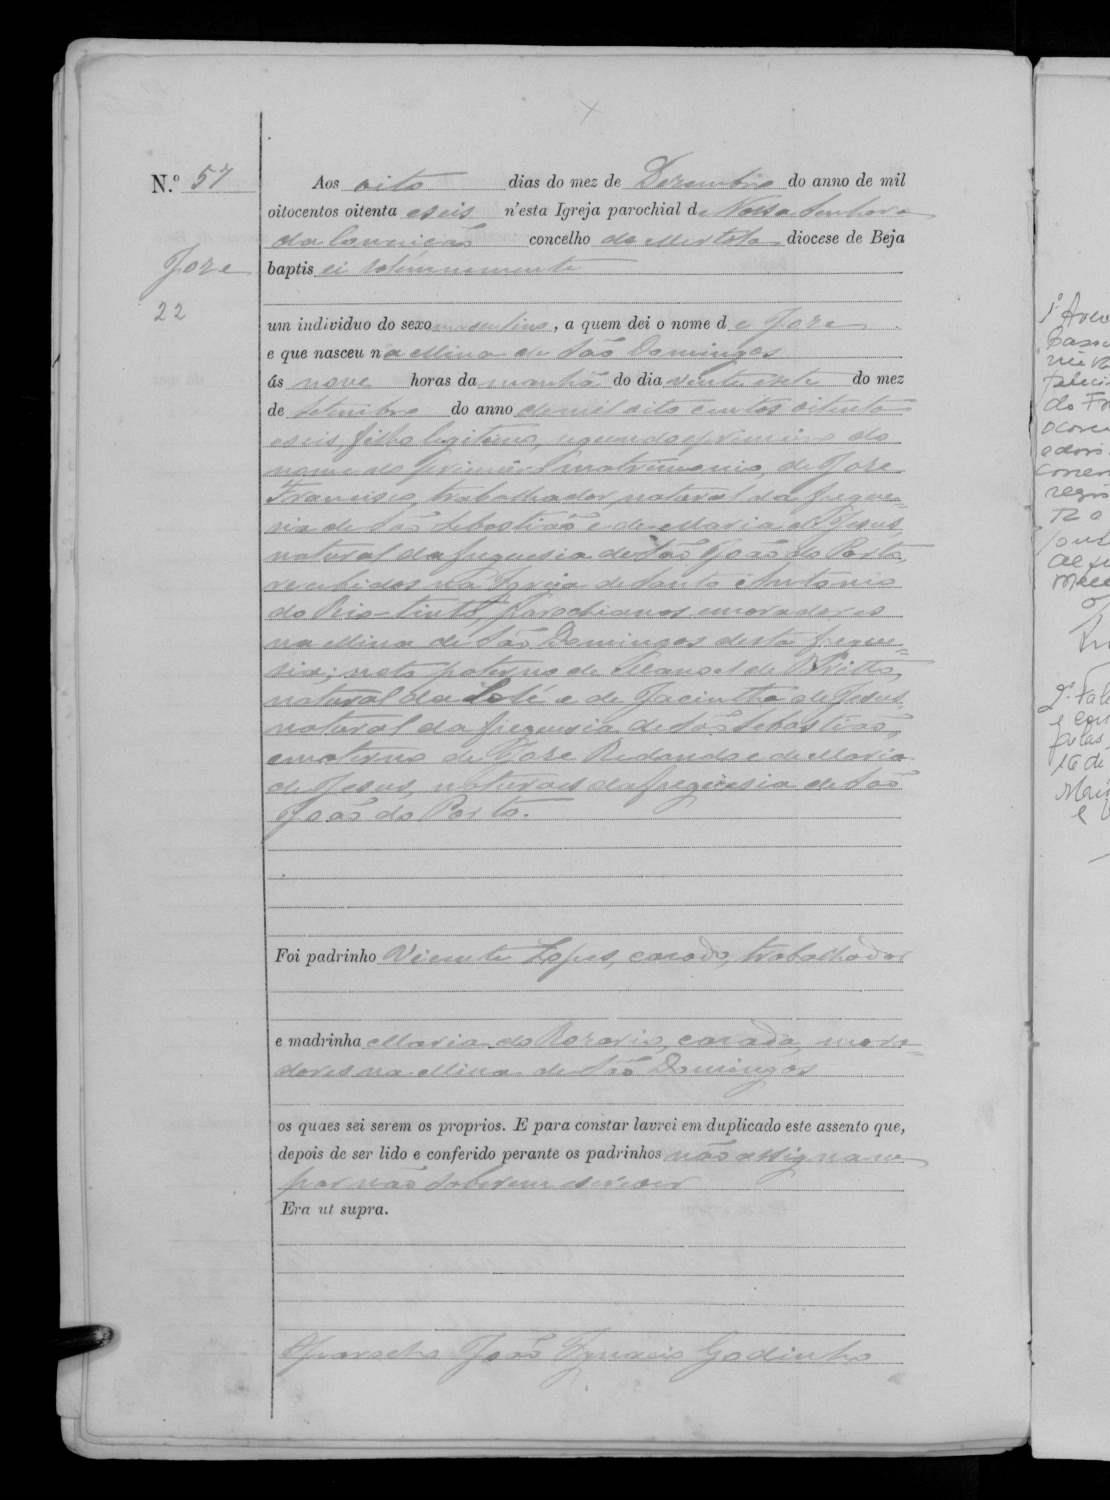 N.º 57
Jose
22
Aos oito dias do mez de Dezembro do anno de mil
oitocentos oitenta e seis n'esta Igreja parochial de Nossa Senhora
da Conceição concelho de Mertola diocese de Beja
baptisei solemnemente
um individuo do sexo masculino, a quem dei o nome de Jose
e que nasceu na Mina de São Domingos
ás nove horas da manhã do dia vinte e sete do mez
de Setembro do anno de mil oito centos oitenta
e seis, filho legitimo, segundo e primeiro do
nome do primeiro matrimonio, de Jose
Francisco, trabalhador, natural da fregue=
sia de São Sebastião e de Maria de Jesus,
natural da freguesia de São João do Porto,
recebidos na Igreja de Santo Antonio
do Rio-tinto, parochianos e moradores
na Mina de São Domingos desta fregue=
sia; neto paterno de Manoel de Britto,
natural da Solé e de Jacintha de Jesus,
natural da freguesia de São Sebastião,
e materno de Jose Redondo e de Maria
de Jesus, naturaes da freguesia de São
João do Porto.
Foi padrinho Vicente Lopes, casado, trabalhador
e madrinha Maria do Rozario, casada, mora=
dores na Mina de São Domingos
os quaes sei serem os proprios. E para constar lavrei em duplicado este assento que,
depois de ser lido e conferido perante os padrinhos não assignam
por não saberem escrever
Era ut supra.
O parocho João Ignacio Godinho